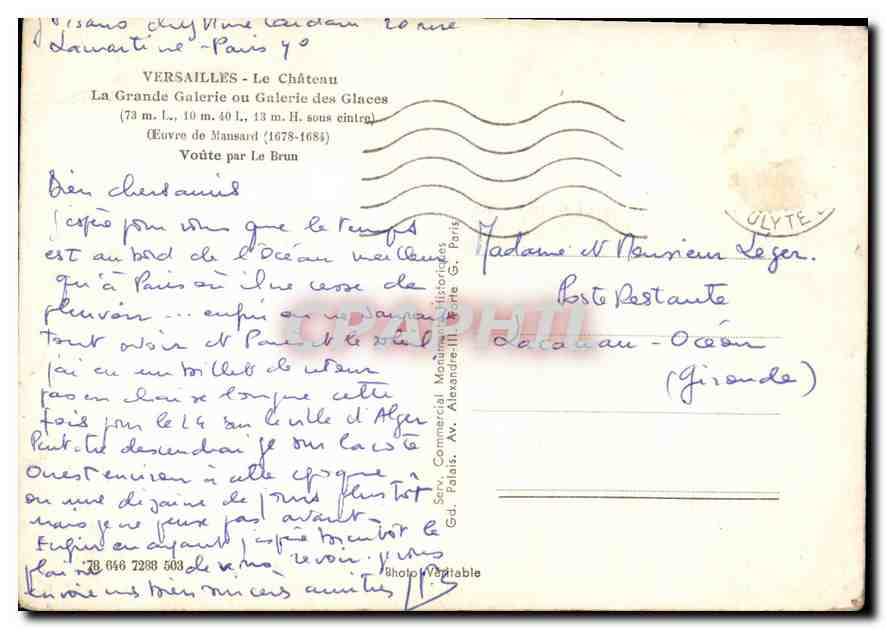 Lamartine - Paris 9°
VERSAILLES - Le Château
La Grande Galerie ou Galerie des Glaces
(73 m. L., 10 m. 40 l., 13 m. H. sous cintre)
Œuvre de Mansard (1678-1684)
Voûte par Le Brun
Bien chers amis
J'espère pour vous que le temps
est au bord de l'Océan meilleur
qu'à Paris où il ne cesse de
pleuvoir ... enfin on ne saurait
tout avoir et Paris et le soleil !
j'ai eu un billet de retour
pas en chaise longue cette
fois pour le 14 sur le ville d'Alger
Peut-être descendrai je sur la côte
Ouest environ à cette époque
ou une dizaine de jours plus tôt
mais je ne pense pas avant -
Enfin en ayant j'espère bientôt le
plaisir de vous revoir. je vous
envoie mes bien sincères amitiés
78 646 7288 503
Photo Véritable
Serv. Commercial Monuments Historiques
Gd. Palais. Av. Alexandre-III. Porte G. Paris
CRAPHTI
OLYTE
Madame et Monsieur Léger.
Poste Restante
Lacanau - Océan
(Gironde)